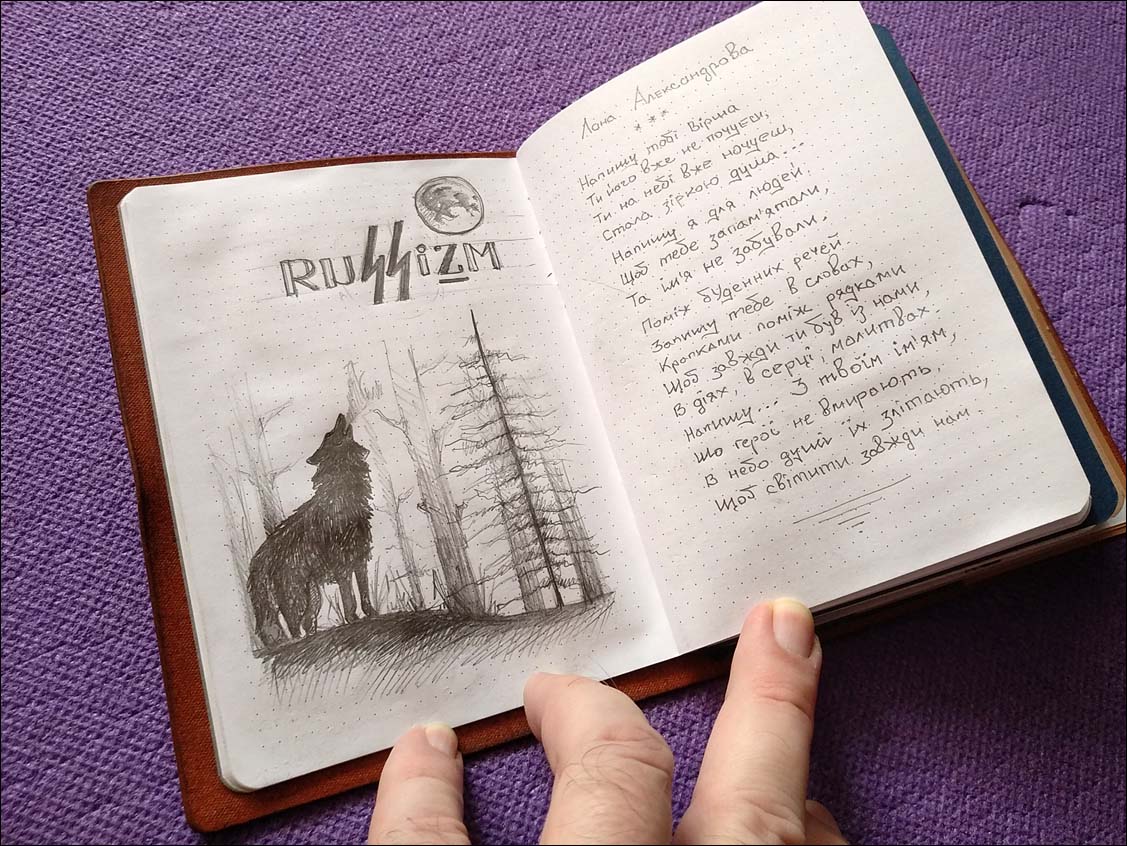 RUSSiZM
Лана Александрова
* * *
Напишу тобі вірша
Ти його вже не почуєш,
Ти на небі вже ночуєш,
Стала зіркою душа...
Напишу а для людей.
Щоб тебе запам'ятали,
Та ім'я не забували,
Поміж буденних речей.
Залишу тебе в словах,
Крапками поміж рядками
Щоб завжди ти був із нами,
В діях, в серці, молитвах.
Напишу... З твоїм ім'ям,
Що герої не вмирають.
В небо душі їх злітають,
Щоб світити завжди нам.